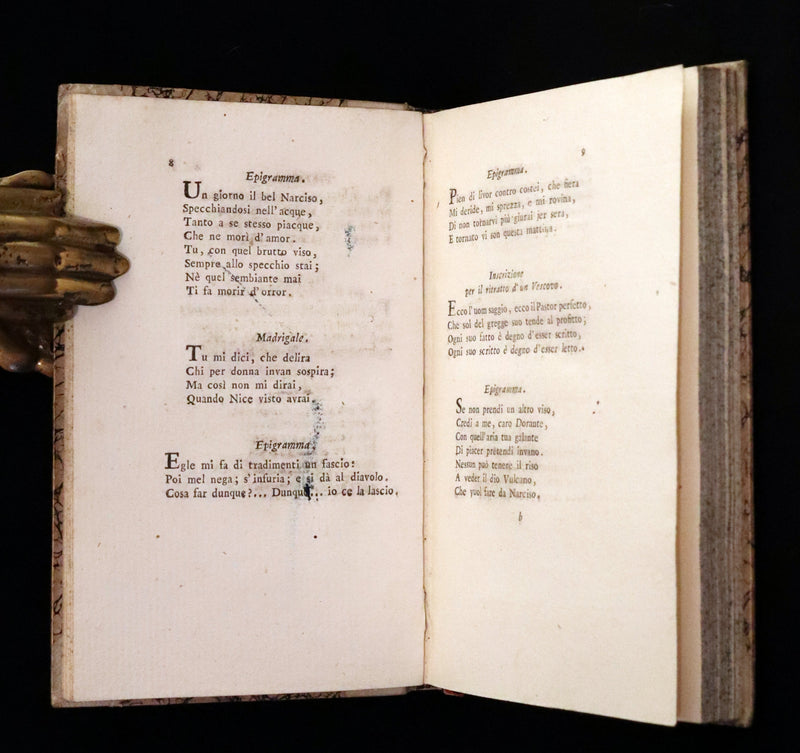 8
Epigramma.
Un giorno il bel Narciso,
Specchiandosi nell'acque,
Tanto a se stesso piacque,
Che ne morì d'amor.
Tu, con quel brutto viso,
Sempre allo specchio stai;
Nè quel sembiante mai
Ti fa morir d'orror.
Madrigale.
Tu mi dici, che delira
Chi per donna invan sospira;
Ma così non mi dirai,
Quando Nice visto avrai.
Epigramma.
Egle mi fa di tradimenti un fascio:
Poi mel nega; s'infuria; e si dà al diavolo.
Cosa far dunque?... Dunque... io ce la lascio.
9
Epigramma.
Pien di livor contro costei, che fiera
Mi deride, mi sprezza, e mi rovina,
Di non tornarvi più giurai jer sera,
E tornato vi son questa mattina.
Inscrizione
per il ritratto d'un Vescovo.
Ecco l'uom saggio, ecco il Pastor perfetto,
Che sol del gregge suo tende al profitto;
Ogni suo fatto è degno d'esser scritto,
Ogni suo scritto è degno d'esser letto.
Epigramma.
Se non prendi un altro viso,
Credi a me, caro Dorante,
Con quell'aria tua galante
Di piacer pretendi invano.
Nessun può tenere il riso
A veder il dio Vulcano,
Che vuol fare da Narciso.
b